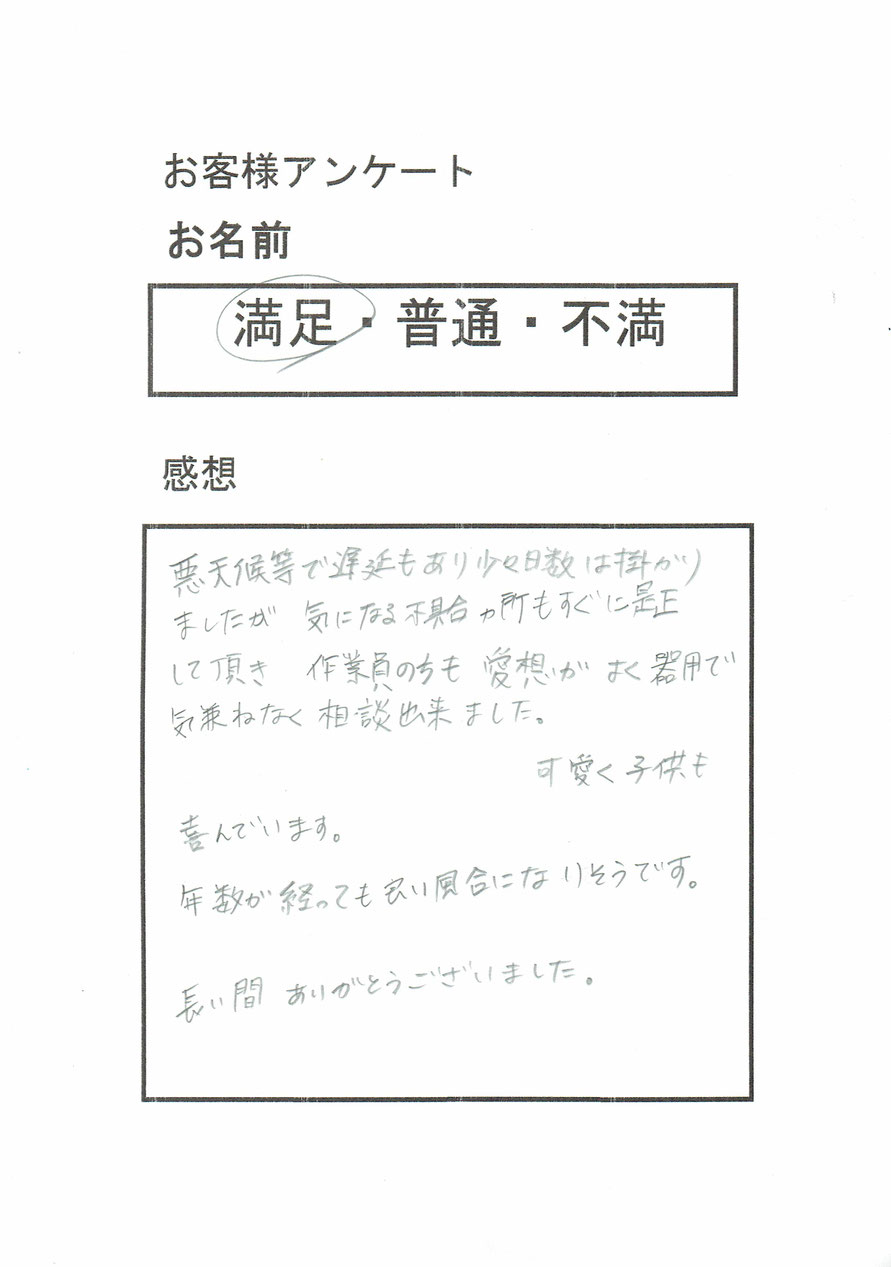 お客様アンケート
お名前
満足・普通・不満
感想
悪天候等で遅延もあり少々日数は掛かり
ましたが 気になる不具合ヵ所もすぐに是正
して頂き 作業員のちも 愛想が よく器用で
気兼ねなく相談出来ました。
可愛く子供も
喜んでいます。
年数が経っても良い風合になりそうです。
長い間 ありがとうございました。